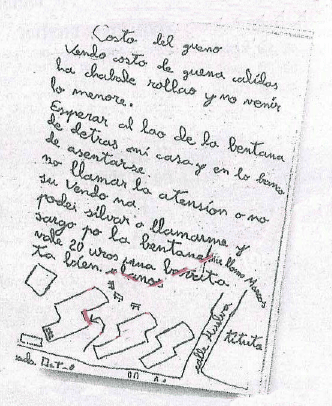 Costo del gueno
Vendo costo de guena calidas
ha chabale rollao y no venir
lo menore.
Esperar al lao de la bentana
de detras mi casa y en lo banco
de asentarse.
no llamar la atension o no
su vendo na.
podei silvar o llamarme y
sargo po la bentana me llamo Marcos
vale 20 uros una
ta bien.
calle Huelva
titeuta